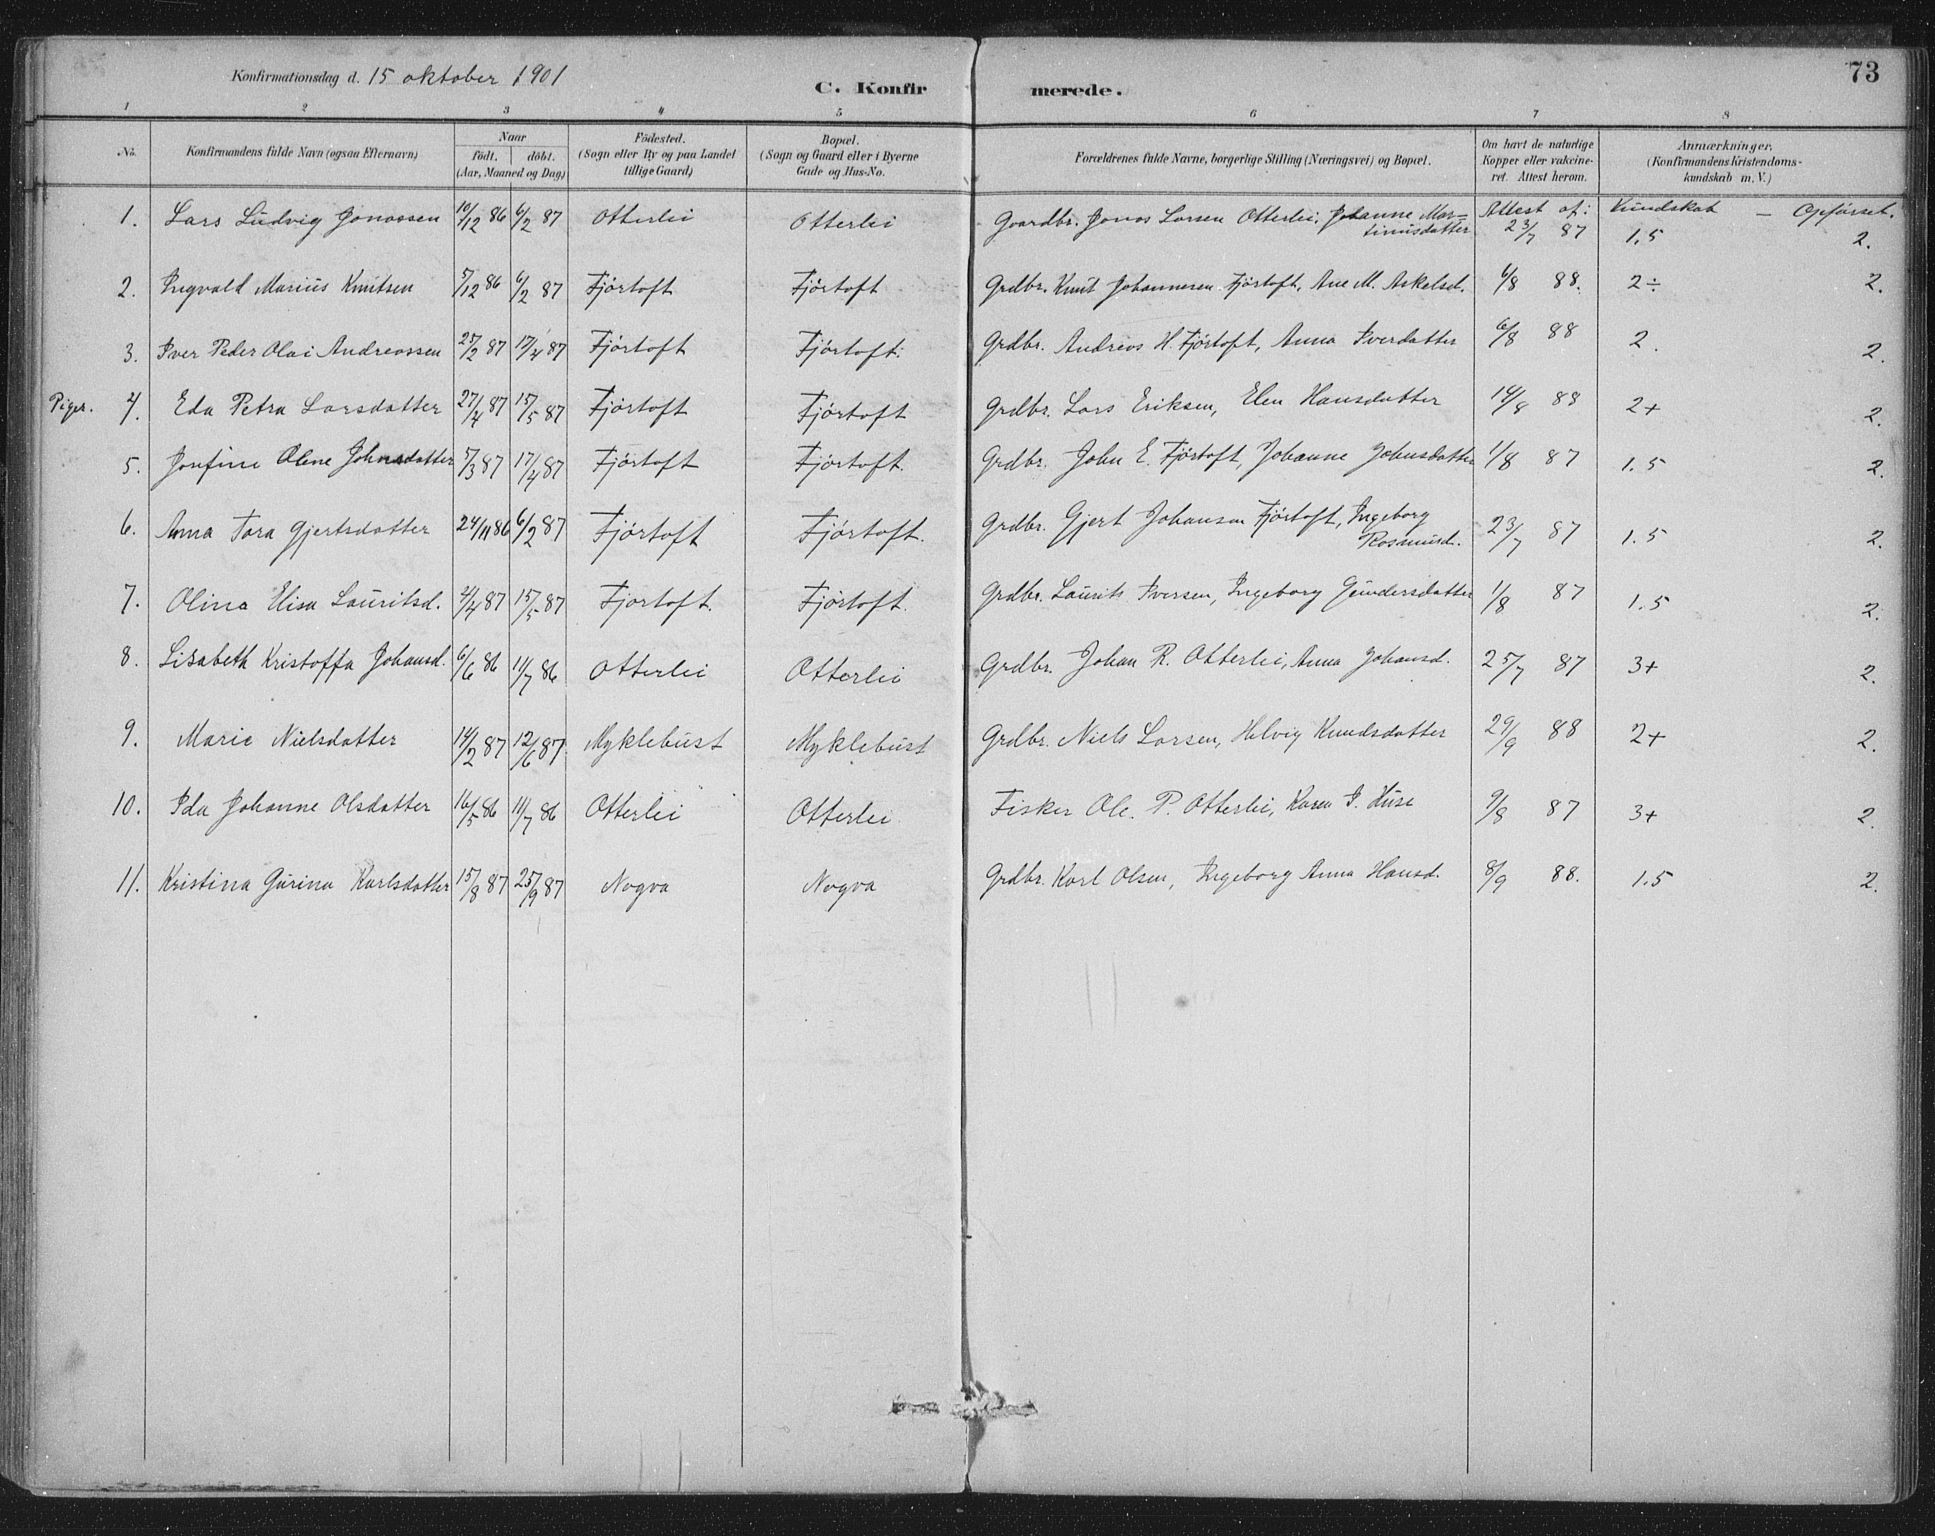 73
Konfirmationsdag d. 15 oktober 1901
C. Konfirmerede.
1 2 3 4 5 6 7 8
No. Konfirmandens fulde Navn (ogsaa Efternavn) Naar födt. döbt. (Aar, Maaned og Dag) Födested. (Sogn eller By og paa Landet tillige Gaard) Bopæl. (Sogn og Gaard eller i Byerne Gade og Hus-No. Forældrenes fulde Navne, borgerlige Stilling (Næringsvei) og Bopæl. Om havt de naturlige Kopper eller vakcineret. Attest herom. Anmærkninger, (Konfirmandens Kristendomskundskab m. V.)
Attest af: Kundskab – Opförsel.
1. Lars Ludvig Jonassen 10/12 86 6/2 87 Otterlei Otterlei Gaardbr. Jonas Larsen Otterlei, Johanne Martinusdatter 23/7 87 1.5 2.
2. Ingvald Marius Knutsen 5/12 86 6/2 87 Fjörtoft Fjörtoft Grdbr. Knut Johannesen Fjörtoft, Ane M. Askelsd. 6/8 88. 2÷ 2.
3. Iver Peder Olai Andreassen 25/2 87 17/4 87 Fjörtoft Fjörtoft. Grdbr. Andreas H. Fjörtoft, Anna Iverdatter 6/8 88 2. 2.
Piger. 4. Eda Petra Larsdatter 27/4 87 15/5 87 Fjörtoft Fjörtoft Grdbr. Lars Eriksen, Elen Hansdatter 14/8 88 2+ 2.
5. Jonfine Oline Johnsdatter 7/3 87 17/4 87 Fjörtoft Fjörtoft. Grdbr. John E. Fjörtoft, Johanne Johnsdatter 1/8 87 1.5 2.
6. Anna Tora Gjertsdatter 24/11 86 6/2 87 Fjörtoft Fjörtoft. Grdbr. Gjert Johansen Fjörtoft, Ingeborg Rasmusd. 23/7 87 1.5 2.
7. Olina Elisa Lauritsd. 4/4 87 15/5 87 Fjortoft. Fjörtoft. Grdbr. Laurits Iversen, Ingeborg Gundersdatter 1/8 87 1.5 2.
8. Lisabeth Kristoffa Johansd. 6/6 86 11/7 86 Otterlei Otterlei Grdbr. Johan R. Otterlei, Anna Johansd. 25/7 87 3+ 2.
9. Marie Nielsdatter 14/2 87 12/6 87. Myklebust Myklebust Grdbr. Niels Larsen, Helvig Knudsdatter 29/9 88 2+ 2.
10. Ida Johanne Olsdatter 16/5 86 11/7 86 Otterlei Otterlei Fisker Ole. P. Otterlei, Karen I. Huse 9/8 87 3+ 2.
11. Kristina Gurina Karlsdatter 15/8 87 25/9 87 Nogva Nogva Grdbr. Karl Olsen, Ingeborg Anna Hansd. 8/9 88. 1.5 2.